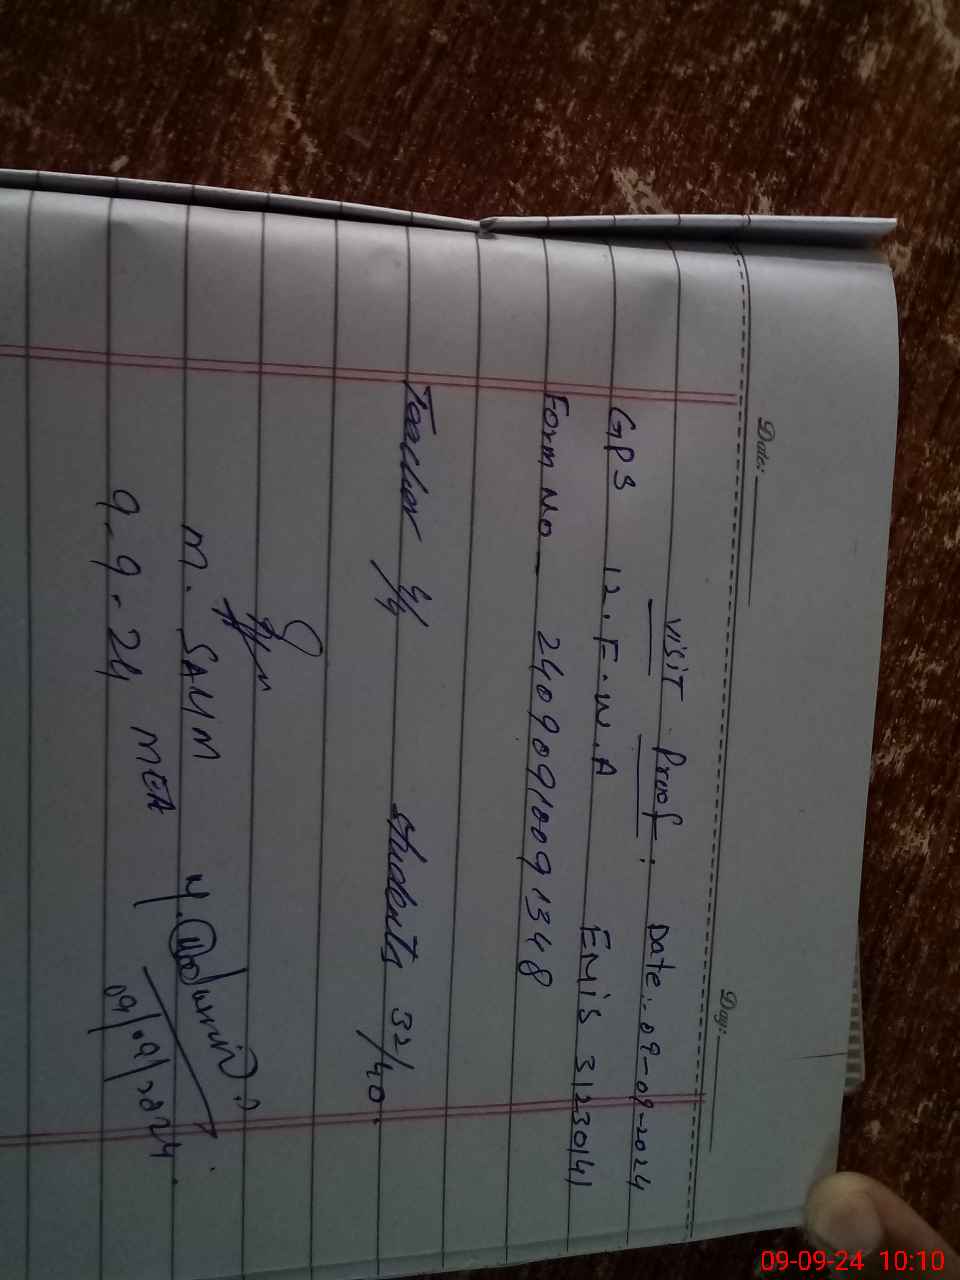 Date: Day:
visit Proof. Date:. 09-09-2024
GPS 12.F.W.A EMIS 31230141
Form No - 24090910091348
Teacher 4/4 students 32/40.
M. SALIM
9.9.24 MEA 09/09/2024
09-09-24 10:10